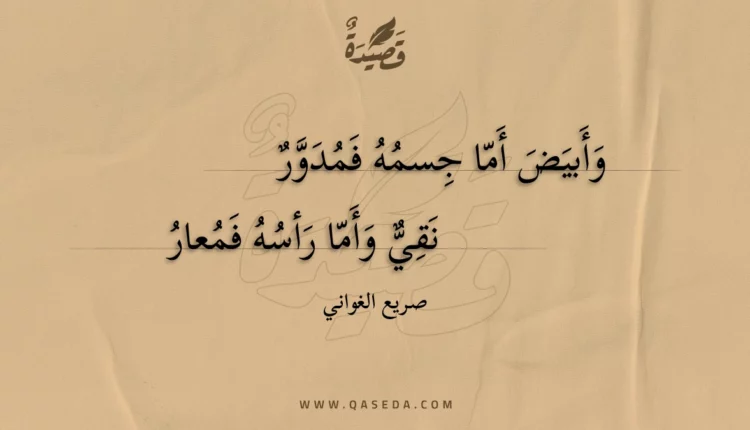 قَصِيدَةٌ
وَأَبيَضَ أَمّا جِسمُهُ فَمُدَوَّرٌ
نَقِيٌّ وَأَمّا رَأسُهُ فَمُعارُ
صريع الغواني
WWW.QASEDA.COM